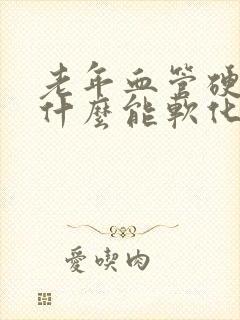 老年血管硬
什麼能軟化
愛喫肉